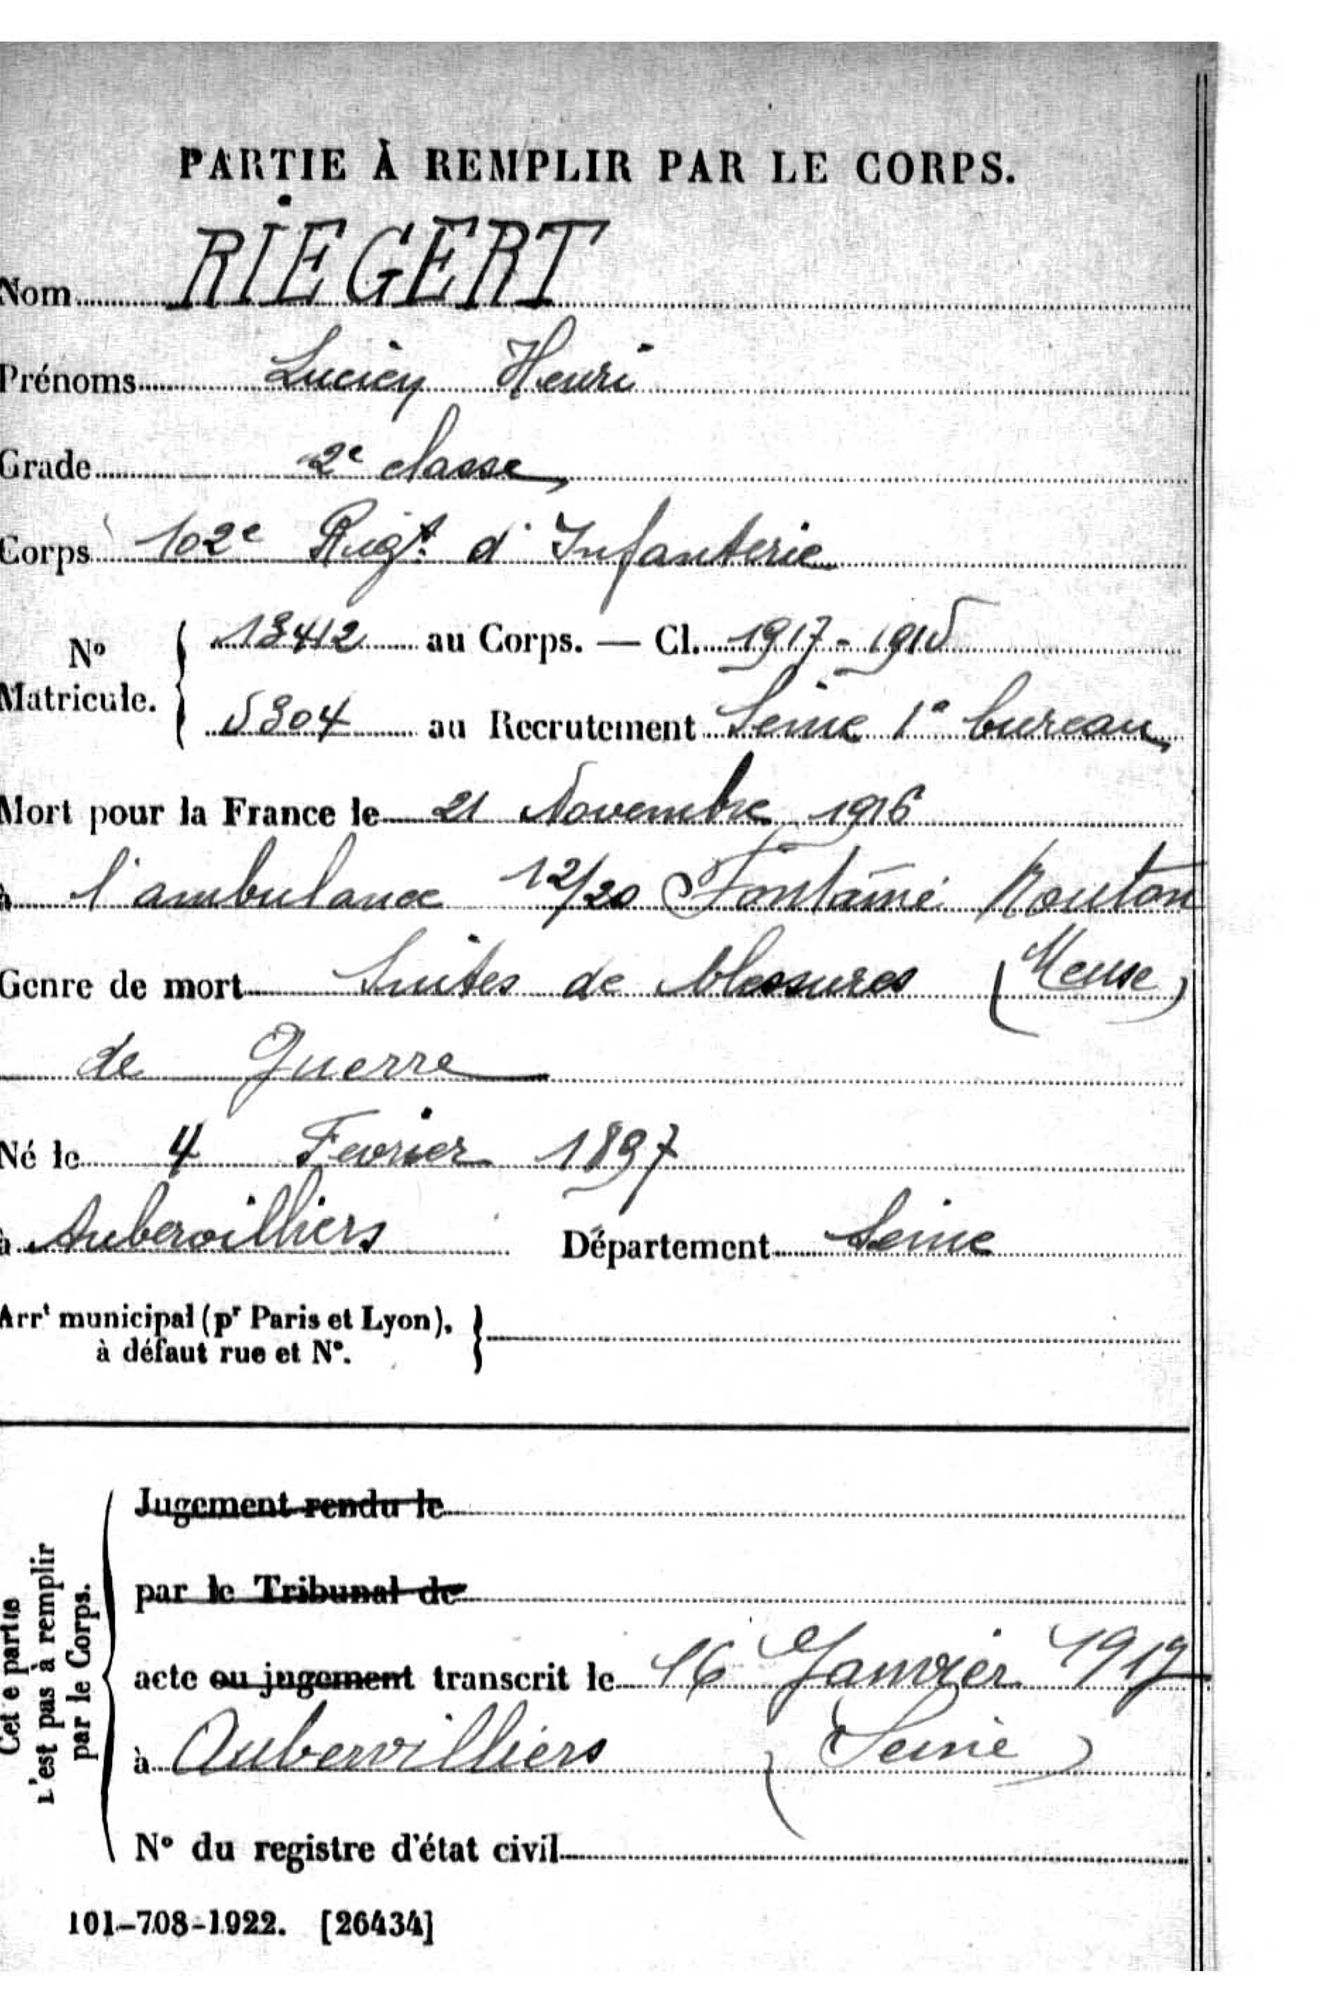 PARTIE À REMPLIR PAR LE CORPS.
Nom RIEGERT
Prénoms Lucien Henri
Grade 2e classe
Corps 102e Rigt. d'Infanterie
No Matricule. { 13412 au Corps. — Cl. 1917 - 1915
5304 au Recrutement Seine 1e bureau
Mort pour la France le 21 Novembre 1916
à l'ambulance 12/20 Fontaine Routon
Genre de mort Suites de blessures (Meuse)
de Guerre
Né le 4 Fevrier 1897
à Aubervilliers Département Seine
Arrt municipal (pr Paris et Lyon), }
à défaut rue et N°.
Cet e partie
L'est pas à remplir
par le Corps.
Jugement rendu le
par le Tribunal de
acte ou jugement transcrit le 16 Janvier 1917
à Aubervilliers (Seine)
N° du registre d'état civil
101-708-1922. [26434]